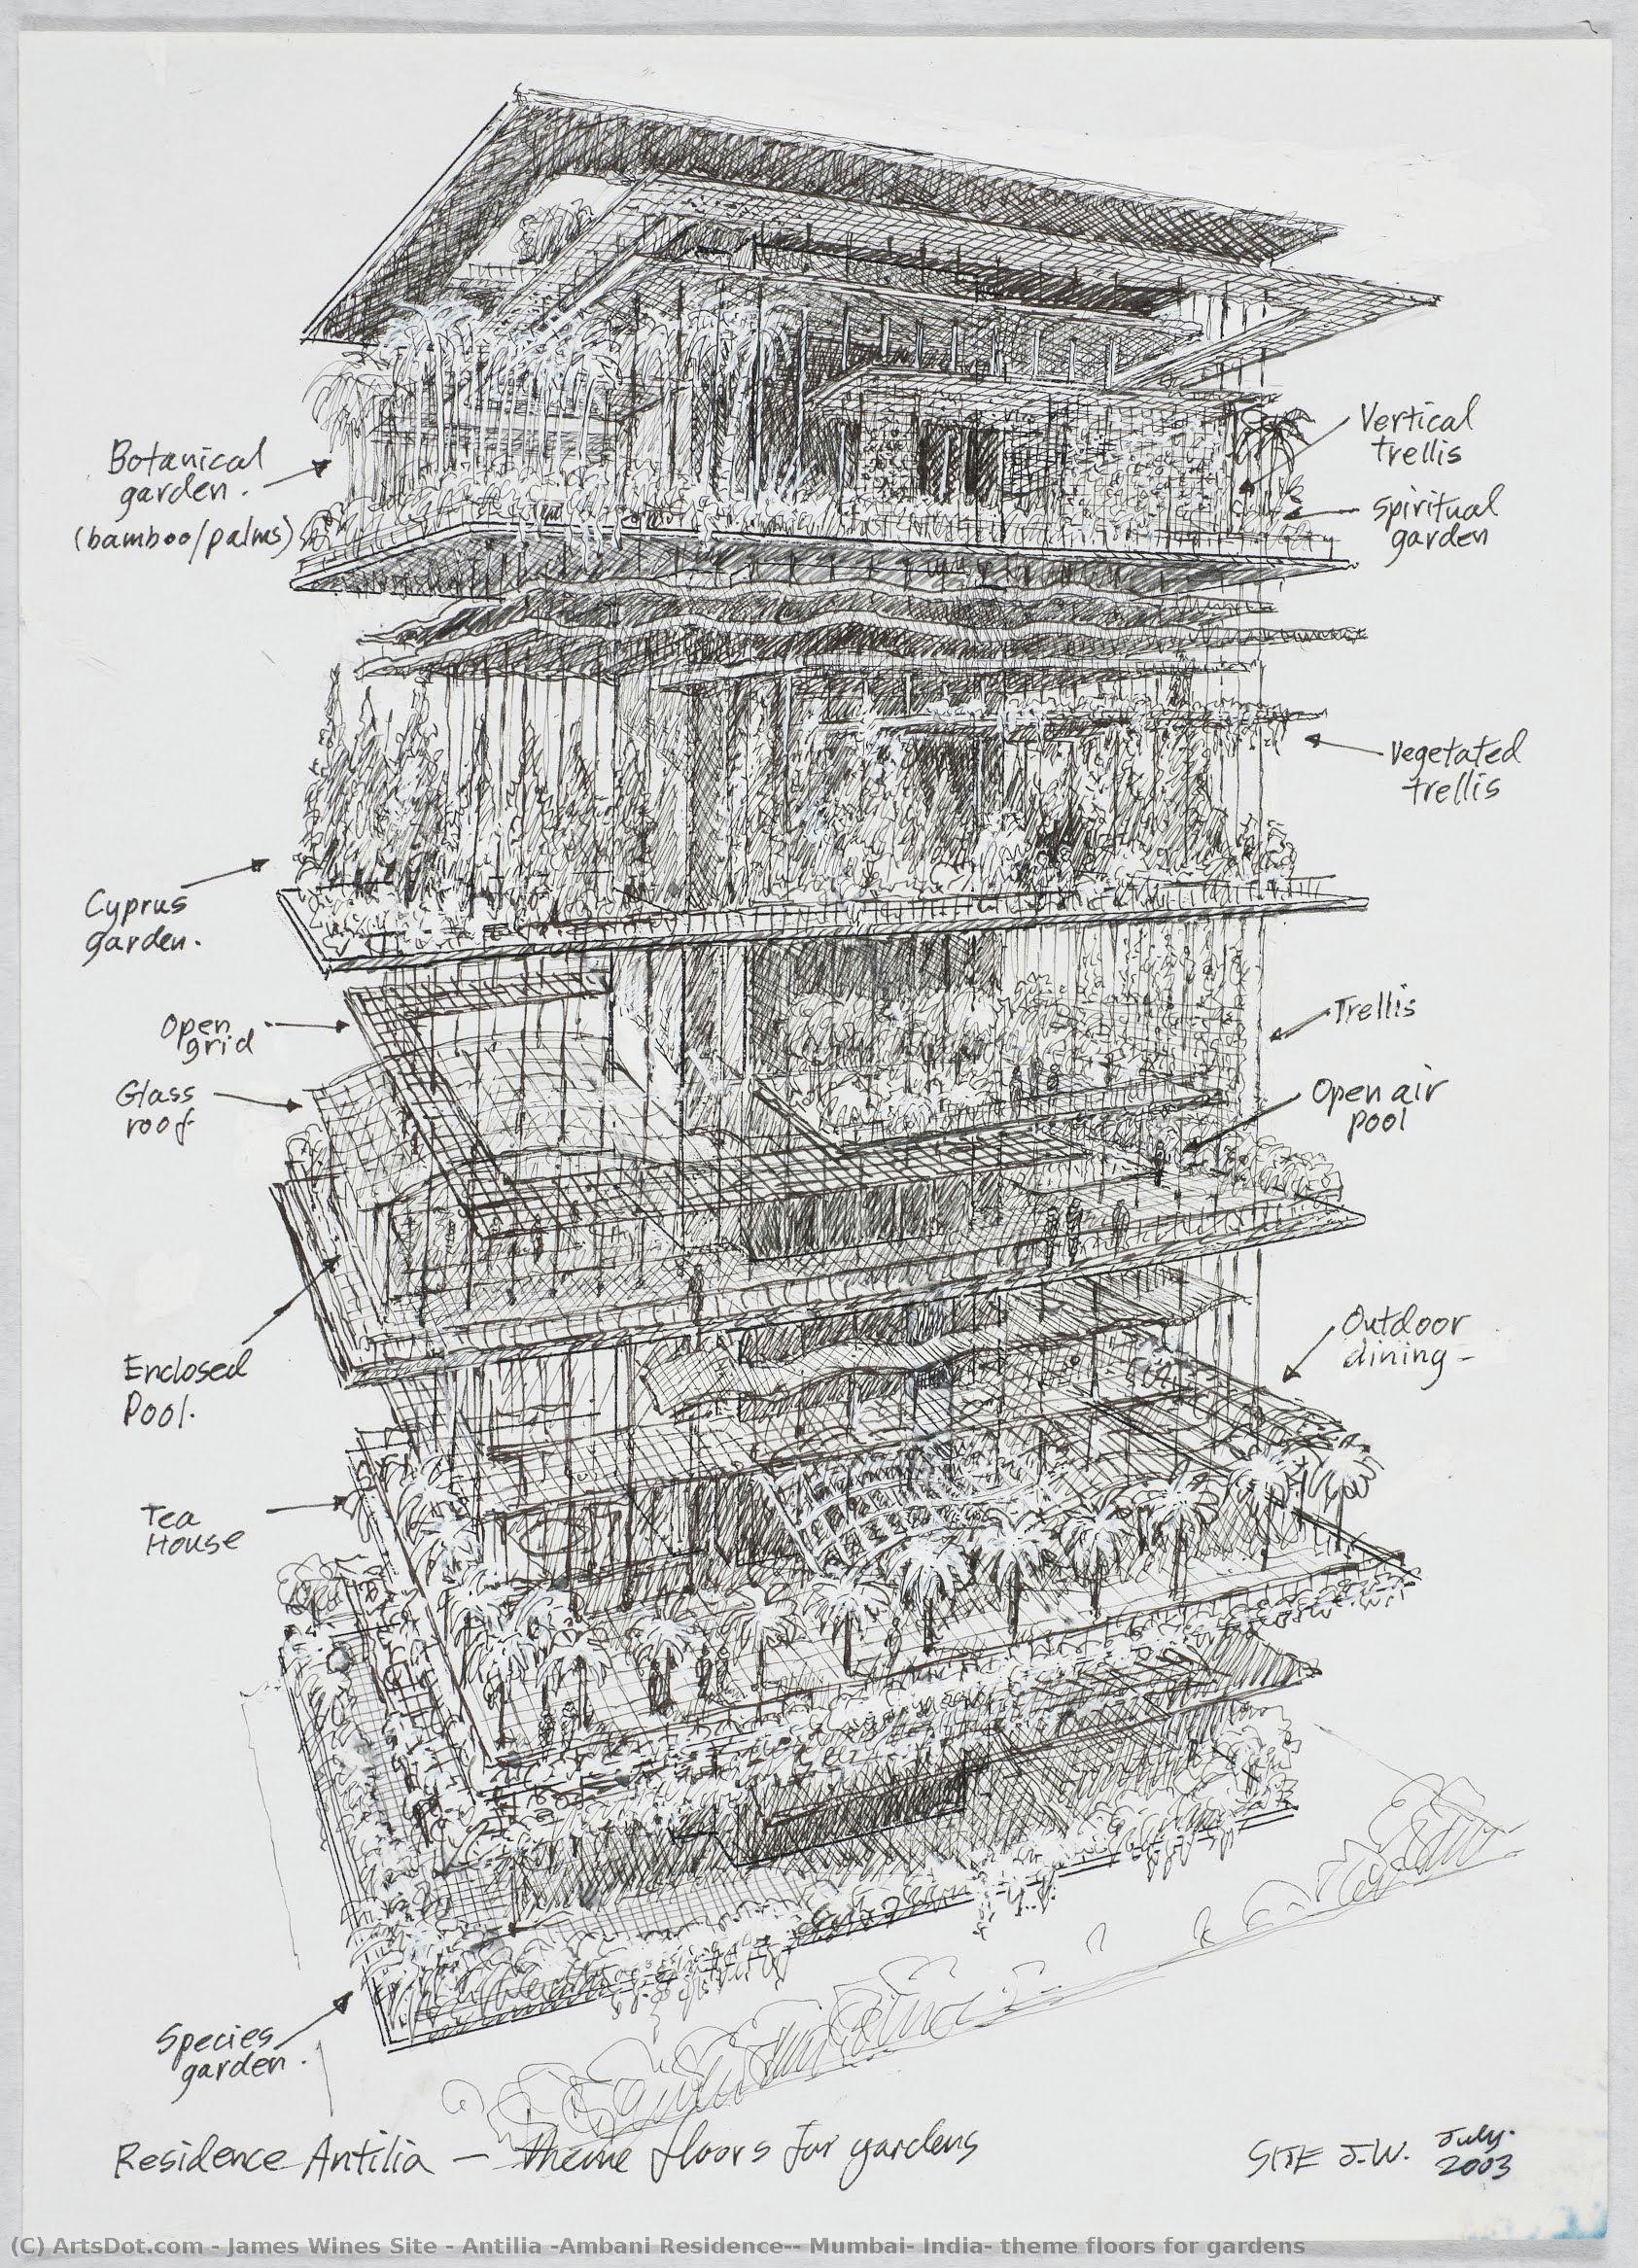 Botanical
garden.
(bamboo/palms)
Vertical
trellis
Spiritual
garden
Vegetated
trellis
Cyprus
garden.
Open
grid
Glass
roof
Trellis
Open air
pool
Enclosed
Pool.
Outdoor
dining -
Tea
House
Species
garden.
Residence Antilia — theme floors for gardens
SITE J.W. July.
2003
(C) ArtsDot.com - James Wines Site - Antilia -Ambani Residence-- Mumbai- India- theme floors for gardens